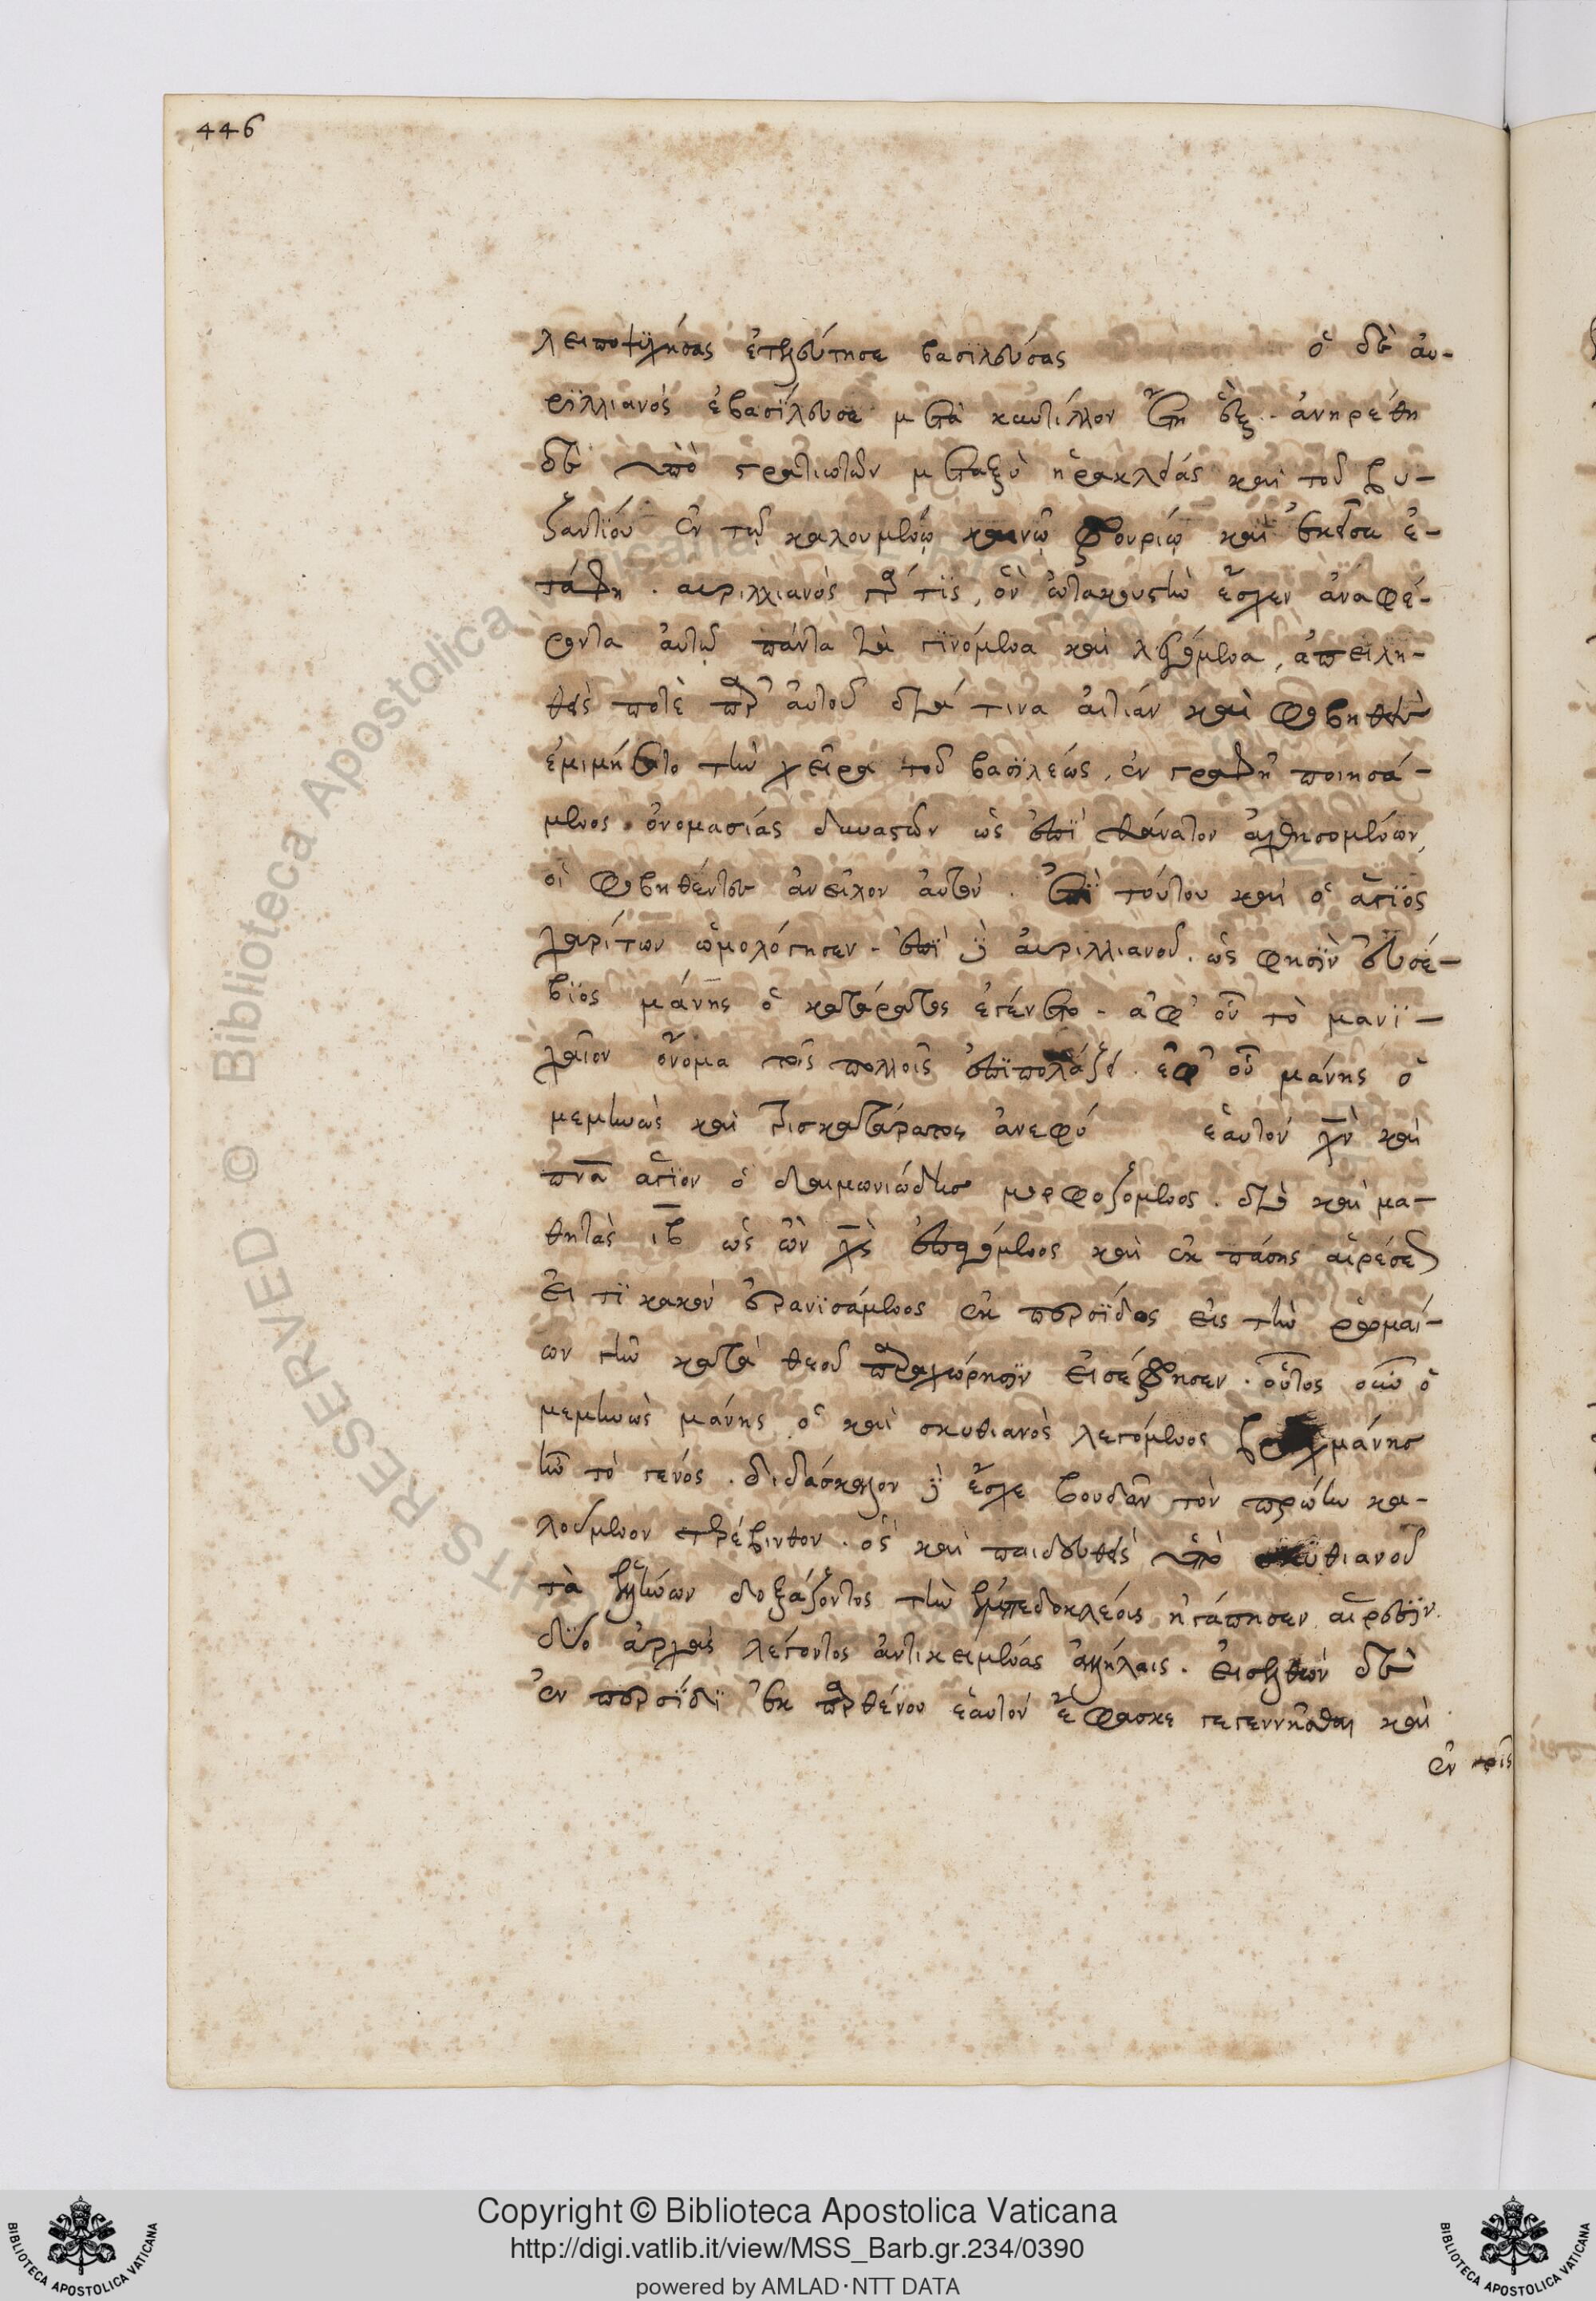 446
λειποψυχήσας ἐτελεύτησε βασιλεύσας ὁ δὲ αὐ-
ριλλιανὸς ἐβασίλευσε μετὰ κυντίλλον ἔτη ἓξ. ἀνηρέθη
δὲ ὑπὸ στρατιωτῶν μεταξὺ ἡρακλείας καὶ τοῦ βυ-
ζαντίου ἐν τῷ καλουμένῳ καινῷ φρουρίῳ καὶ ἐκεῖσε ἐ-
τάφη. αυριλλιανὸς γάρ τις, ὃν ὠτακουστὴν εἶχεν ἀναφέ-
ροντα αὐτῷ πάντα τὰ γινόμενα καὶ λεγόμενα, ἀπειλη-
θεὶς ποτὲ παρ' αὐτοῦ διά τινα αἰτίαν καὶ φοβηθεὶς
ἐμιμήσατο τὴν χεῖρα τοῦ βασιλέως, ἐν γραφῇ ποιησά-
μενος ὀνομασίας δυναστῶν ὡς ἐπὶ θάνατον ἀχθησομένων,
οἱ φοβηθέντες ἀνεῖλον αὐτόν. ἐπὶ τούτου καὶ ὁ ἅγιος
χαρίτων ὡμολόγησεν. ἐπὶ δὲ αυριλλιανοῦ, ὡς φησὶν εὐσέ-
βιος μάνης ὁ κατάρατος ἐγένετο. ἀφ' οὗ τὸ μανι-
χαῖον ὄνομα τοῖς πολλοῖς ἐπιπολάζει. ἐφ' οὗ μάνης ὁ
μεμηνὼς καὶ τρισκατάρατος ἀνεφύ ἑαυτὸν χν καὶ
πνα ἅγιον ὁ δαιμονιώδης μορφοζόμενος. διὸ καὶ μα-
θητὰς ιβ ὡς ὢν χς ἐπαγόμενος καὶ ἐκ πάσης αἱρέσεως
εἴ τι κακὸν ἐρανισάμενος ἐκ περσίδος εἰς τὴν ῥωμαί-
ων γῆν κατὰ θεοῦ παραχώρησιν εἰσέφρησεν. οὗτος οὖν ὁ
μεμηνὼς μάνης ὁ καὶ σκυθιανὸς λεγόμενος βραχμάνης
ἦν τὸ γένος. διδάσκαλον δὲ ἔσχε βουδᾶν τὸν πρώην κα-
λούμενον τερέβινθον. ὃς καὶ παιδευθεὶς ὑπὸ σκυθιανοῦ
τὰ ἑλλήνων δοξάζοντος τὴν ἐμπεδοκλέοις ἠγάπησεν αἵρεσιν.
δύο ἀρχὰς λέγοντος ἀντικειμένας ἀλλήλαις. εἰσελθὼν δὲ
ἐν περσίδι ἐκ παρθένου ἑαυτὸν ἔφασκε γεγεννῆσθαι καὶ
ἐν τοῖς
Biblioteca Apostolica Vaticana
RIGHTS RESERVED © Biblioteca Apostolica Vaticana
Copyright © Biblioteca Apostolica Vaticana
http://digi.vatlib.it/view/MSS_Barb.gr.234/0390
powered by AMLAD·NTT DATA
BIBLIOTECA APOSTOLICA VATICANA
BIBLIOTECA APOSTOLICA VATICANA